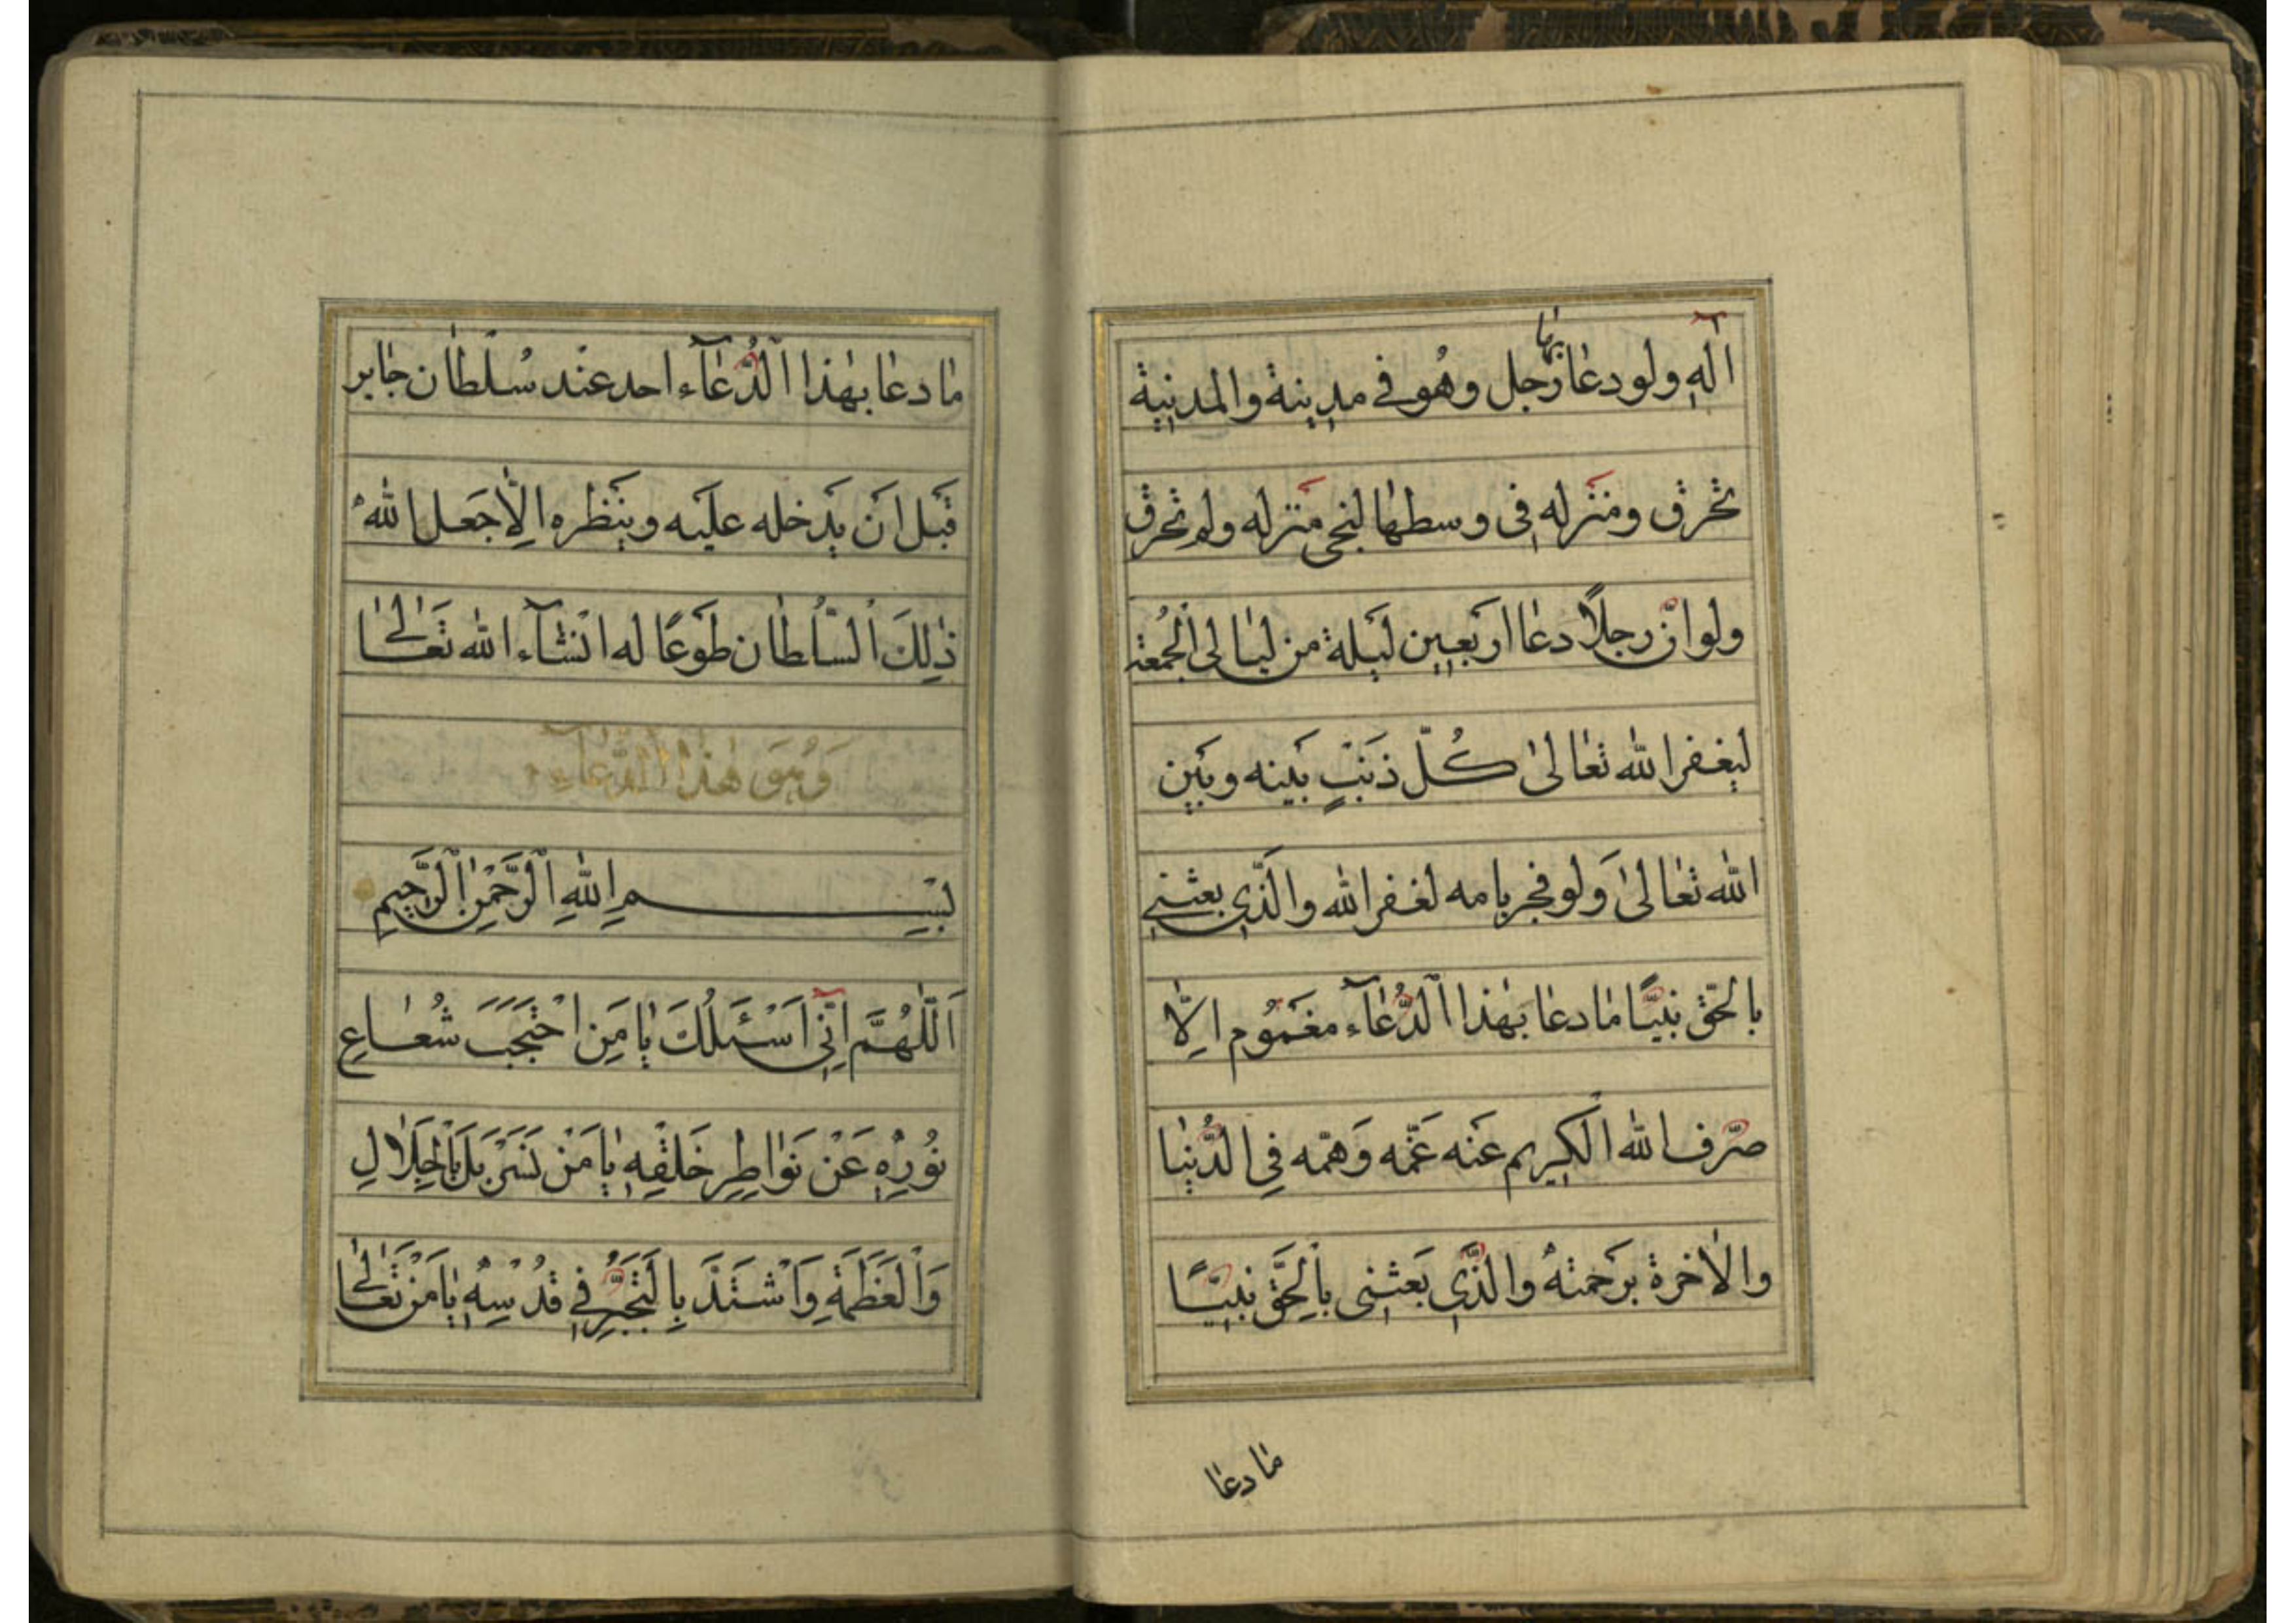 اٰلَهِ ولو دعٰا بهٰا رجل وهُو فے مدٖينة والمدنيٖة
تحرق ومنَزله فٖى وسطهٰا لنجى منزله ولم تحرق
ولو انّ رجلًا دعٰا اربَعٖين ليَلة من ليٰالى الْجُمعة
ليٖغفر الله تعٰالىٰ كُلّ ذنَبٍ بَينه وبَيٖن
الله تعٰالىٰ وَلو فجر بامه لغفر الله والَّذٖى بعثنٖى
بالحَّق نبيًّا مٰا دعٰا بهٰذا الْدُّعٰآء مغمَوُم اِلّا
صرّف الله الْكَرٖيم عنَه غمَّه وَهمّه فِى الدُّنيٖا
والاٰخرة برَحمتهُ والذَّٖى بَعثنٖى باِلْحَّق نبيًّٖا
مٰا دعٰا
مٰا دعٰا بهٰذا الْدُّعٰآء احد عنْد سُلْطٰان جٰابر
قَبل اَن يَدخله عليَه وينَظره اِلّٰا جَعل اللهُ
ذٰلِكَ الْسّلُطٰان طوَعًا له انْشٰآء الله تعَٰالىٰ
وَهُوَ هٰذَا الْدُّعٰآء
بِسْمِ اللهِ الْرَّحْمٰنِ الْرَّحٖيمِ
اَللّٰهُمَّ اِنّٖى اَسْئَلُكَ يٰا مَنِ احْتَجَبَ شُعٰاعِ
نوُرِهٖ عَنْ نَوٰاظِرِ خَلْقِهٖ يٰا مَنْ تَسَرْبَلَ بِالْجَلٰالِ
وَالْعَظَمَةِ وَاشْتَدَّ بِالْتَجَبُّرِ فٖى قُدْسِهٖ يٰا مَنْ تَعٰالىٰ